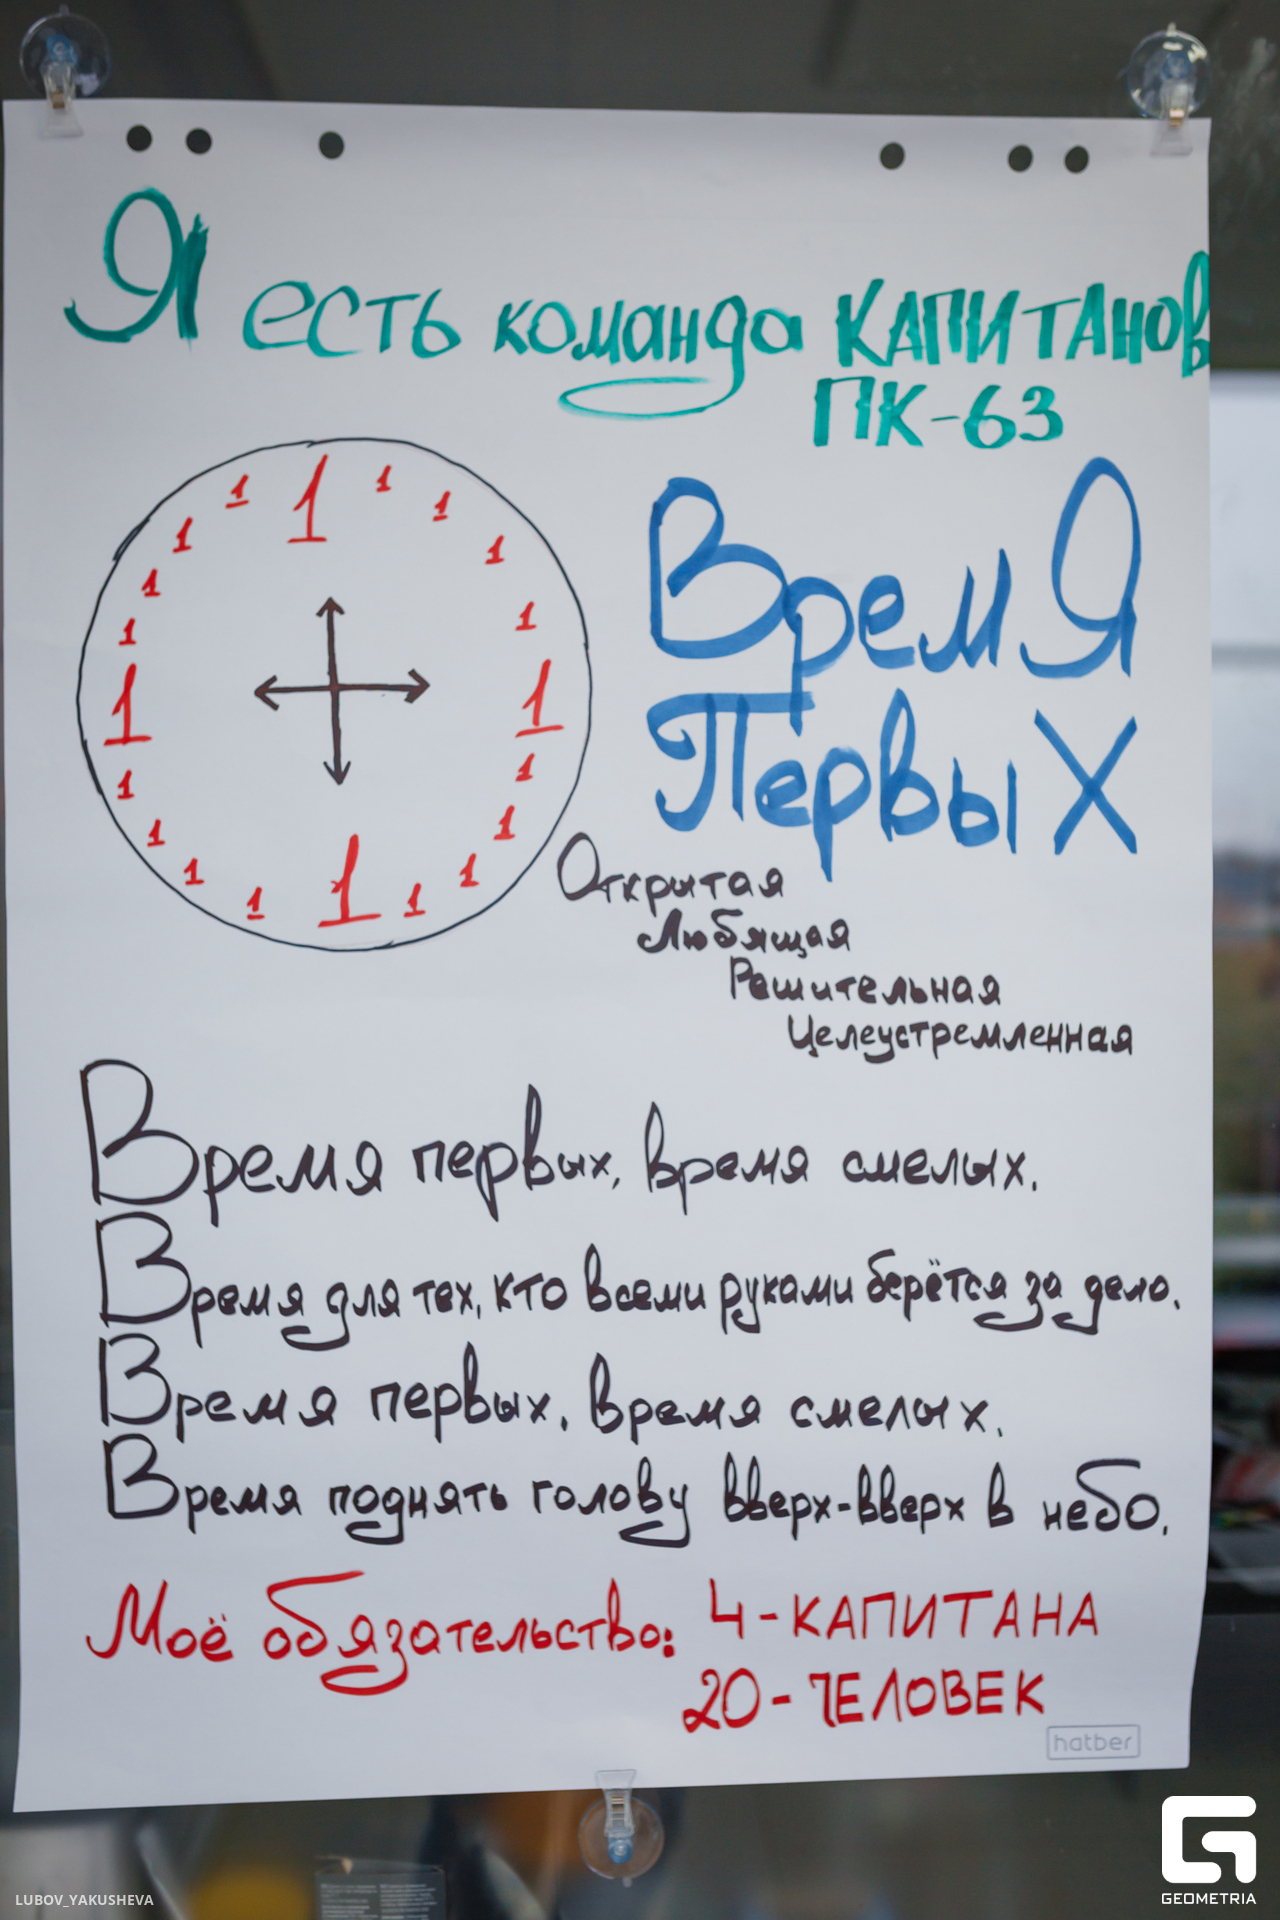 Я есть команда КАПИТАНОВ
ПК-63
1 1 1 1 1 1 1 1 1 1 1 1 1 1 1 1 1 1 1 1
ВремЯ
ПервыХ
Открытая
Любящая
Решительная
Целеустремленная
Время первых, время смелых.
Время для тех, кто всеми руками берётся за дело.
Время первых, время смелых.
Время поднять голову вверх-вверх в небо.
Моё обязательство: 4-КАПИТАНА
20-ЧЕЛОВЕК
hatber
LUBOV_YAKUSHEVA
GEOMETRIA